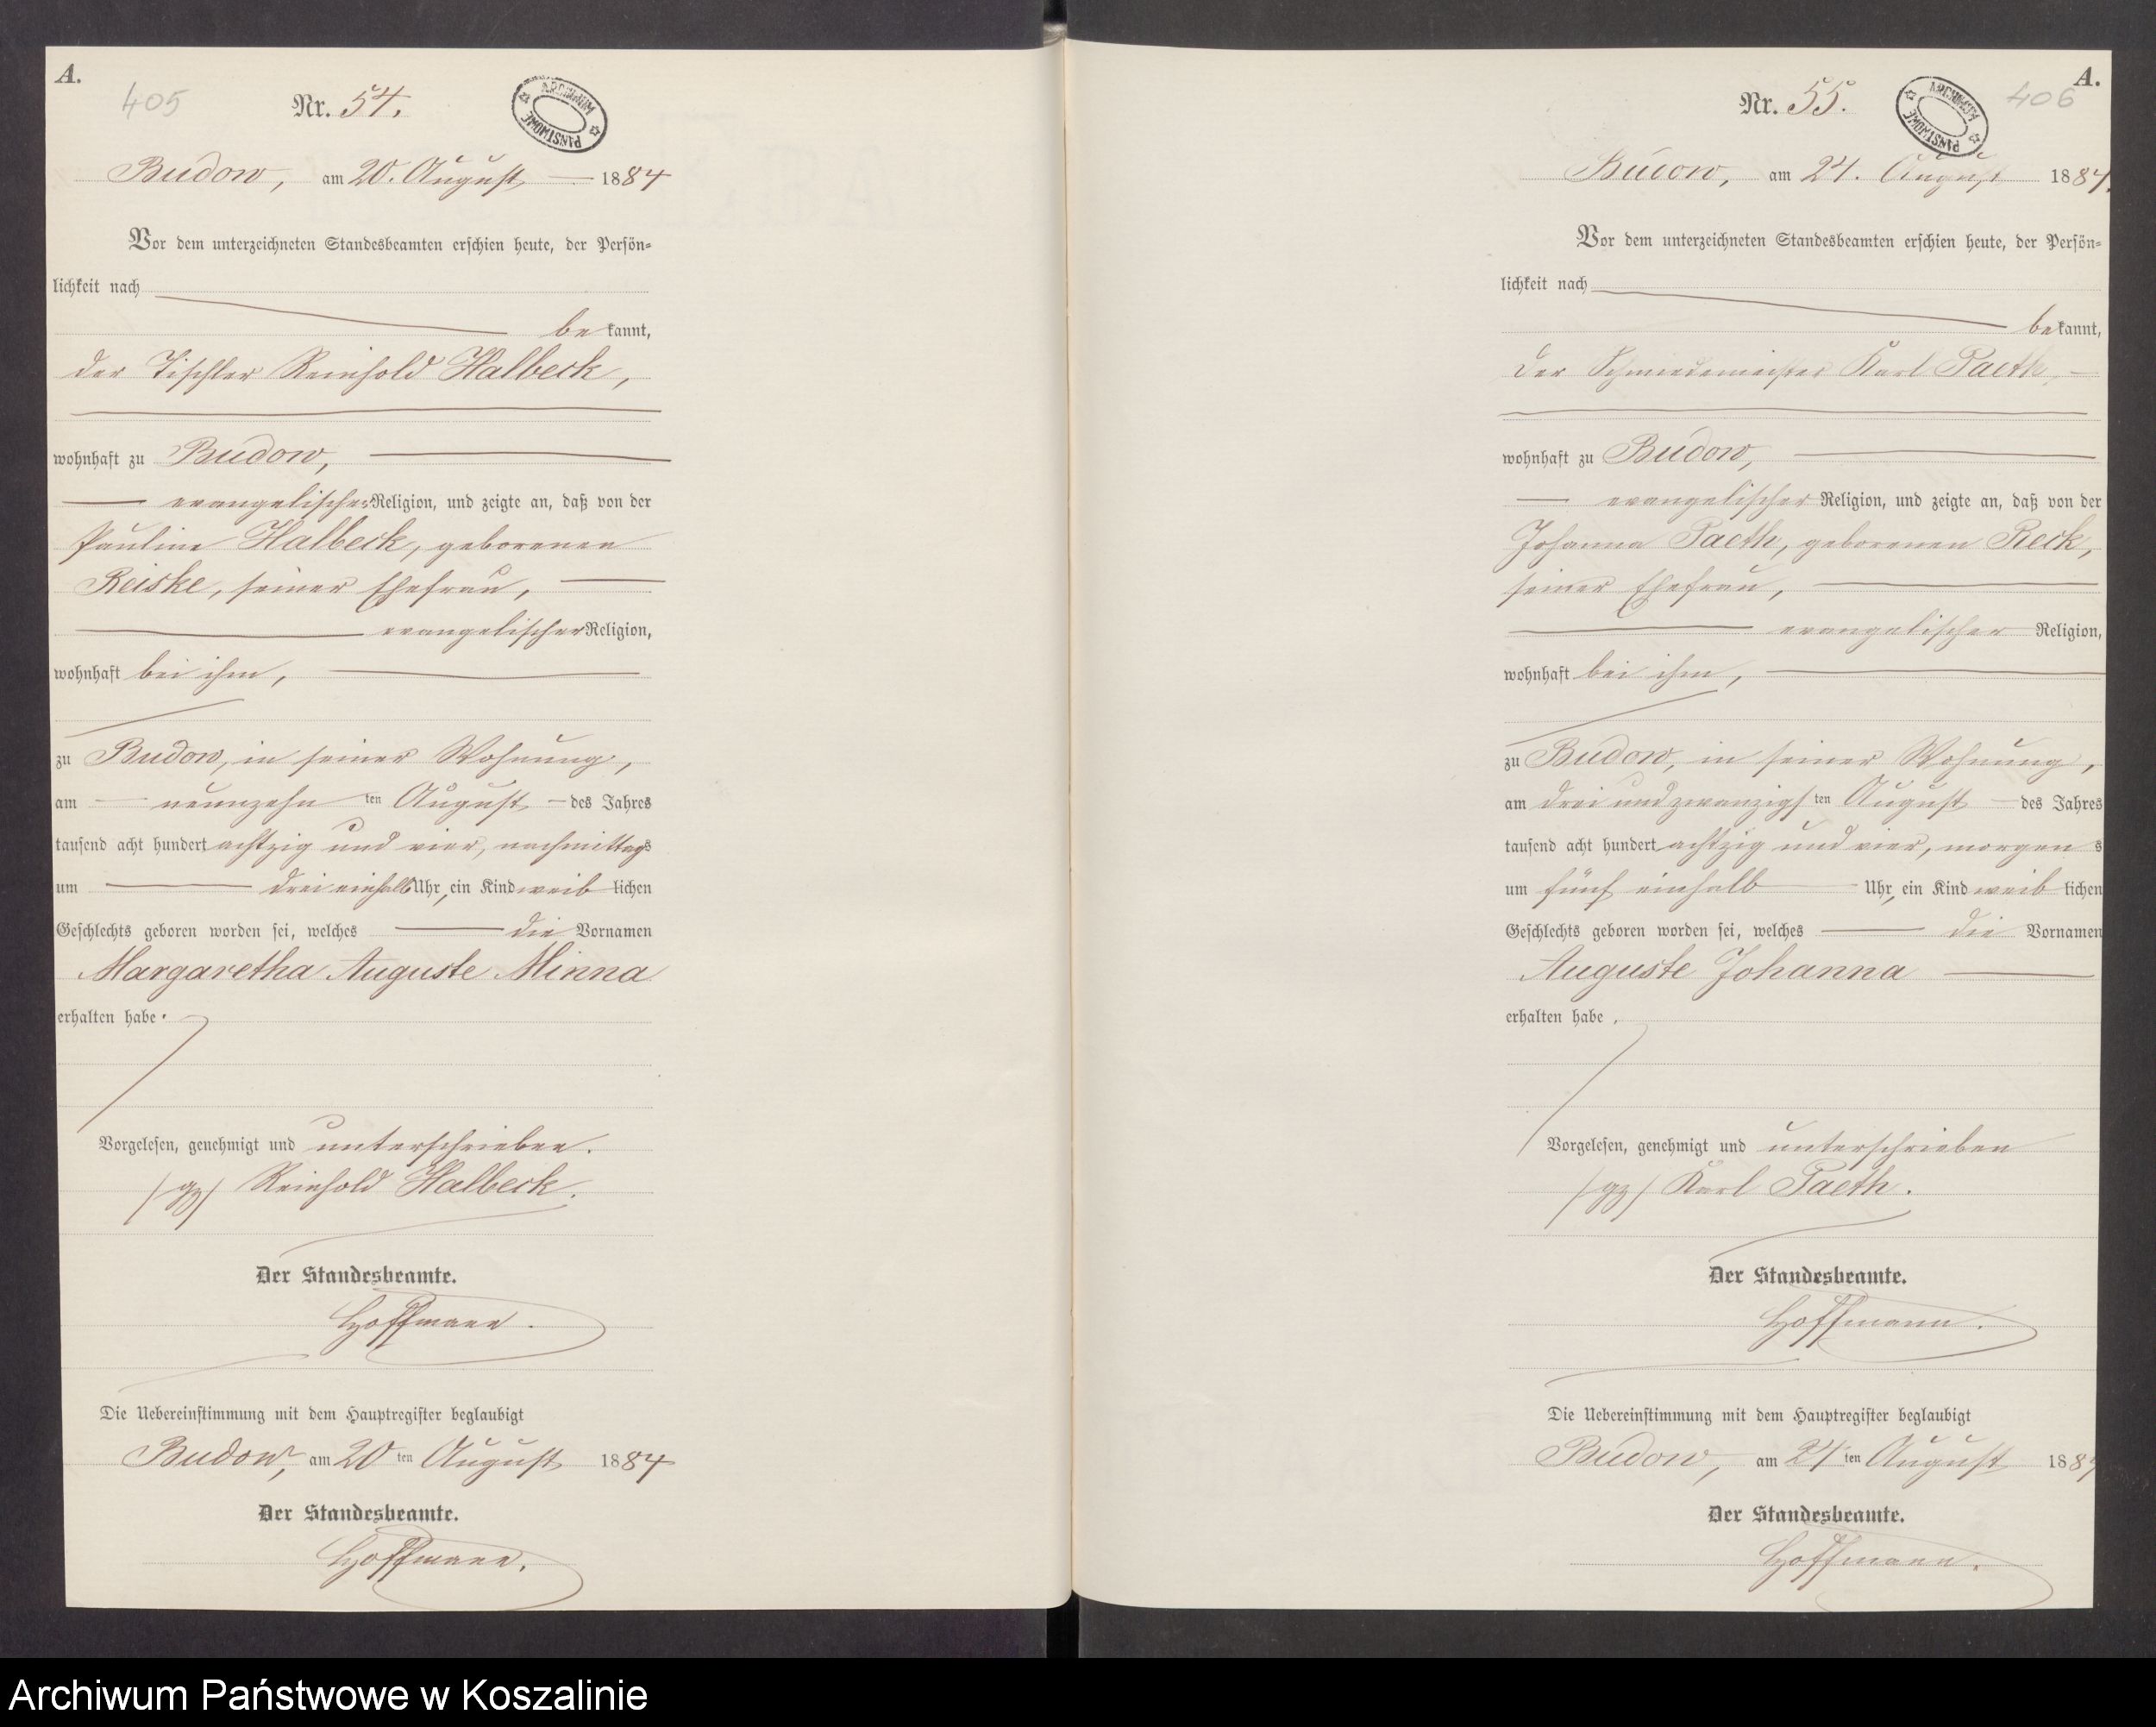 A.
405
Nr. 54.
ARCHIWUM PAŃSTWOWE
Budow, am 20. August 1884
Vor dem unterzeichneten Standesbeamten erschien heute, der Persön-
lichkeit nach
bekannt,
der Tischler Reinhold Halbeck,
wohnhaft zu Budow,
evangelischer Religion, und zeigte an, daß von der
Pauline Halbeck, geborenen
Reiske, seiner Ehefrau,
evangelischer Religion,
wohnhaft bei ihm,
zu Budow, in seiner Wohnung,
am neunzehnten August des Jahres
tausend acht hundert achtzig und vier, nachmittags
um drei einhalb Uhr, ein Kind weiblichen
Geschlechts geboren worden sei, welches die Vornamen
Margaretha Auguste Minna
erhalten habe.
Vorgelesen, genehmigt und unterschrieben.
/gz/ Reinhold Halbeck.
Der Standesbeamte.
Hoffmann.
Die Uebereinstimmung mit dem Hauptregister beglaubigt
Budow, am 20ten August 1884
Der Standesbeamte.
Hoffmann.
A.
406
Nr. 55.
ARCHIWUM PAŃSTWOWE
Budow, am 24. August 1884.
Vor dem unterzeichneten Standesbeamten erschien heute, der Persön-
lichkeit nach
bekannt,
der Schmiedemeister Karl Paeth,
wohnhaft zu Budow,
evangelischer Religion, und zeigte an, daß von der
Johanna Paeth, geborenen Pieck,
seiner Ehefrau,
evangelischer Religion,
wohnhaft bei ihm,
zu Budow, in seiner Wohnung,
am drei und zwanzigsten August des Jahres
tausend acht hundert achtzig und vier, morgens
um fünf einhalb Uhr, ein Kind weiblichen
Geschlechts geboren worden sei, welches die Vornamen
Auguste Johanna
erhalten habe.
Vorgelesen, genehmigt und unterschrieben
/gz/ Karl Paeth.
Der Standesbeamte.
Hoffmann.
Die Uebereinstimmung mit dem Hauptregister beglaubigt
Budow, am 24ten August 1884
Der Standesbeamte.
Hoffmann.
Archiwum Państwowe w Koszalinie